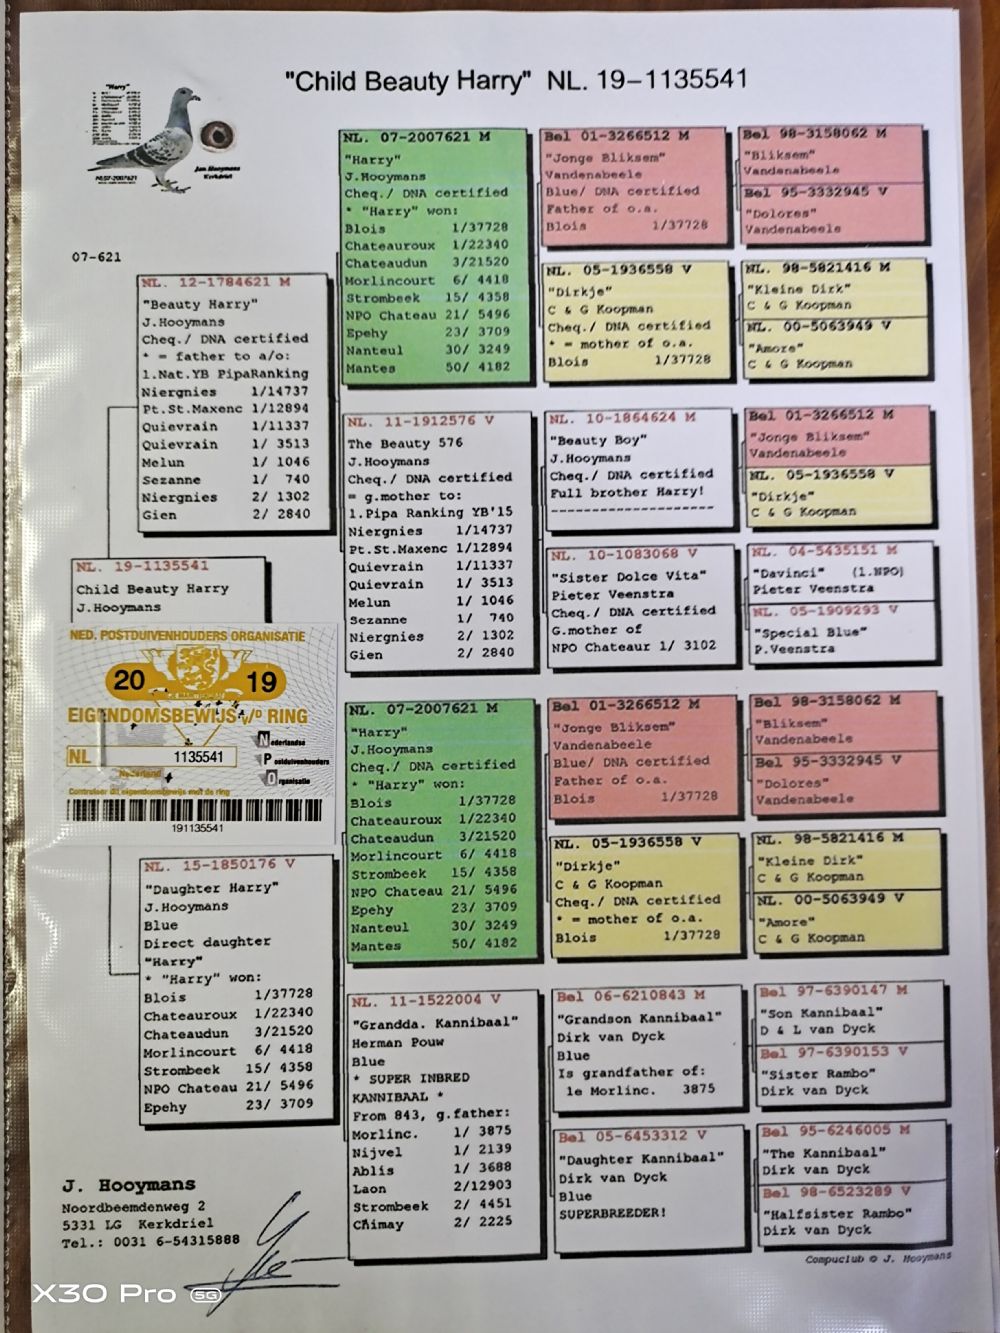 "Child Beauty Harry" NL. 19-1135541
"Harry"
NL07-2007621
Jan Hooymans
Kerkdriel
07-621
NL. 12-1784621 M
"Beauty Harry"
J.Hooymans
Cheq./ DNA certified
* = father to a/o:
1.Nat.YB PipaRanking
Niergnies 1/14737
Pt.St.Maxenc 1/12894
Quievrain 1/11337
Quievrain 1/ 3513
Melun 1/ 1046
Sezanne 1/ 740
Niergnies 2/ 1302
Gien 2/ 2840
NL. 19-1135541
Child Beauty Harry
J.Hooymans
NED. POSTDUIVENHOUDERS ORGANISATIE
20 19
EIGENDOMSBEWIJS v/d RING
NL 1135541
Nederlandse
Postduivenhouders
Organisatie
Nederland
Controleer dit eigendomsbewijs met de ring
191135541
NL. 15-1850176 V
"Daughter Harry"
J.Hooymans
Blue
Direct daughter
"Harry"
* "Harry" won:
Blois 1/37728
Chateauroux 1/22340
Chateaudun 3/21520
Morlincourt 6/ 4418
Strombeek 15/ 4358
NPO Chateau 21/ 5496
Epehy 23/ 3709
J. Hooymans
Noordbeemdenweg 2
5331 LG Kerkdriel
Tel.: 0031 6-54315888
NL. 07-2007621 M
"Harry"
J.Hooymans
Cheq./ DNA certified
* "Harry" won:
Blois 1/37728
Chateauroux 1/22340
Chateaudun 3/21520
Morlincourt 6/ 4418
Strombeek 15/ 4358
NPO Chateau 21/ 5496
Epehy 23/ 3709
Nanteul 30/ 3249
Mantes 50/ 4182
NL. 11-1912576 V
The Beauty 576
J.Hooymans
Cheq./ DNA certified
= g.mother to:
1.Pipa Ranking YB'15
Niergnies 1/14737
Pt.St.Maxenc 1/12894
Quievrain 1/11337
Quievrain 1/ 3513
Melun 1/ 1046
Sezanne 1/ 740
Niergnies 2/ 1302
Gien 2/ 2840
NL. 07-2007621 M
"Harry"
J.Hooymans
Cheq./ DNA certified
* "Harry" won:
Blois 1/37728
Chateauroux 1/22340
Chateaudun 3/21520
Morlincourt 6/ 4418
Strombeek 15/ 4358
NPO Chateau 21/ 5496
Epehy 23/ 3709
Nanteul 30/ 3249
Mantes 50/ 4182
NL. 11-1522004 V
"Grandda. Kannibaal"
Herman Pouw
Blue
* SUPER INBRED
KANNIBAAL *
From 843, g.father:
Morlinc. 1/ 3875
Nijvel 1/ 2139
Ablis 1/ 3688
Laon 2/12903
Strombeek 2/ 4451
Chimay 2/ 2225
Bel 01-3266512 M
"Jonge Bliksem"
Vandenabeele
Blue/ DNA certified
Father of o.a.
Blois 1/37728
NL. 05-1936558 V
"Dirkje"
C & G Koopman
Cheq./ DNA certified
* = mother of o.a.
Blois 1/37728
NL. 10-1864624 M
"Beauty Boy"
J.Hooymans
Cheq./ DNA certified
Full brother Harry!
-------------------
NL. 10-1083068 V
"Sister Dolce Vita"
Pieter Veenstra
Cheq./ DNA certified
G.mother of
NPO Chateaur 1/ 3102
Bel 01-3266512 M
"Jonge Bliksem"
Vandenabeele
Blue/ DNA certified
Father of o.a.
Blois 1/37728
NL. 05-1936558 V
"Dirkje"
C & G Koopman
Cheq./ DNA certified
* = mother of o.a.
Blois 1/37728
Bel 06-6210843 M
"Grandson Kannibaal"
Dirk van Dyck
Blue
Is grandfather of:
1e Morlinc. 3875
Bel 05-6453312 V
"Daughter Kannibaal"
Dirk van Dyck
Blue
SUPERBREEDER!
Bel 98-3158062 M
"Bliksem"
Vandenabeele
Bel 95-3332945 V
"Dolores"
Vandenabeele
NL. 98-5821416 M
"Kleine Dirk"
C & G Koopman
NL. 00-5063949 V
"Amore"
C & G Koopman
Bel 01-3266512 M
"Jonge Bliksem"
Vandenabeele
NL. 05-1936558 V
"Dirkje"
C & G Koopman
NL. 04-5435151 M
"Davinci" (1.NPO)
Pieter Veenstra
NL. 05-1909293 V
"Special Blue"
P.Veenstra
Bel 98-3158062 M
"Bliksem"
Vandenabeele
Bel 95-3332945 V
"Dolores"
Vandenabeele
NL. 98-5821416 M
"Kleine Dirk"
C & G Koopman
NL. 00-5063949 V
"Amore"
C & G Koopman
Bel 97-6390147 M
"Son Kannibaal"
D & L van Dyck
Bel 97-6390153 V
"Sister Rambo"
Dirk van Dyck
Bel 95-6246005 M
"The Kannibaal"
Dirk van Dyck
Bel 98-6523289 V
"Halfsister Rambo"
Dirk van Dyck
Compuclub © J. Hooymans
X30 Pro 5G